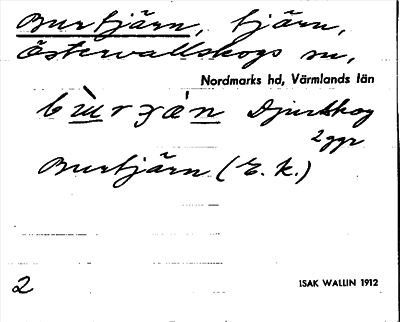 Burtjärn, tjärn,
Östervallskogs sn,
Nordmarks hd, Värmlands län
Djurskog
2 ggr
Burtjärn (E. k.)
2
ISAK WALLIN 1912